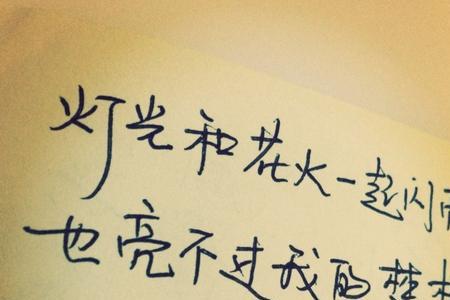 灯光和花火一起闪
也亮不过我的